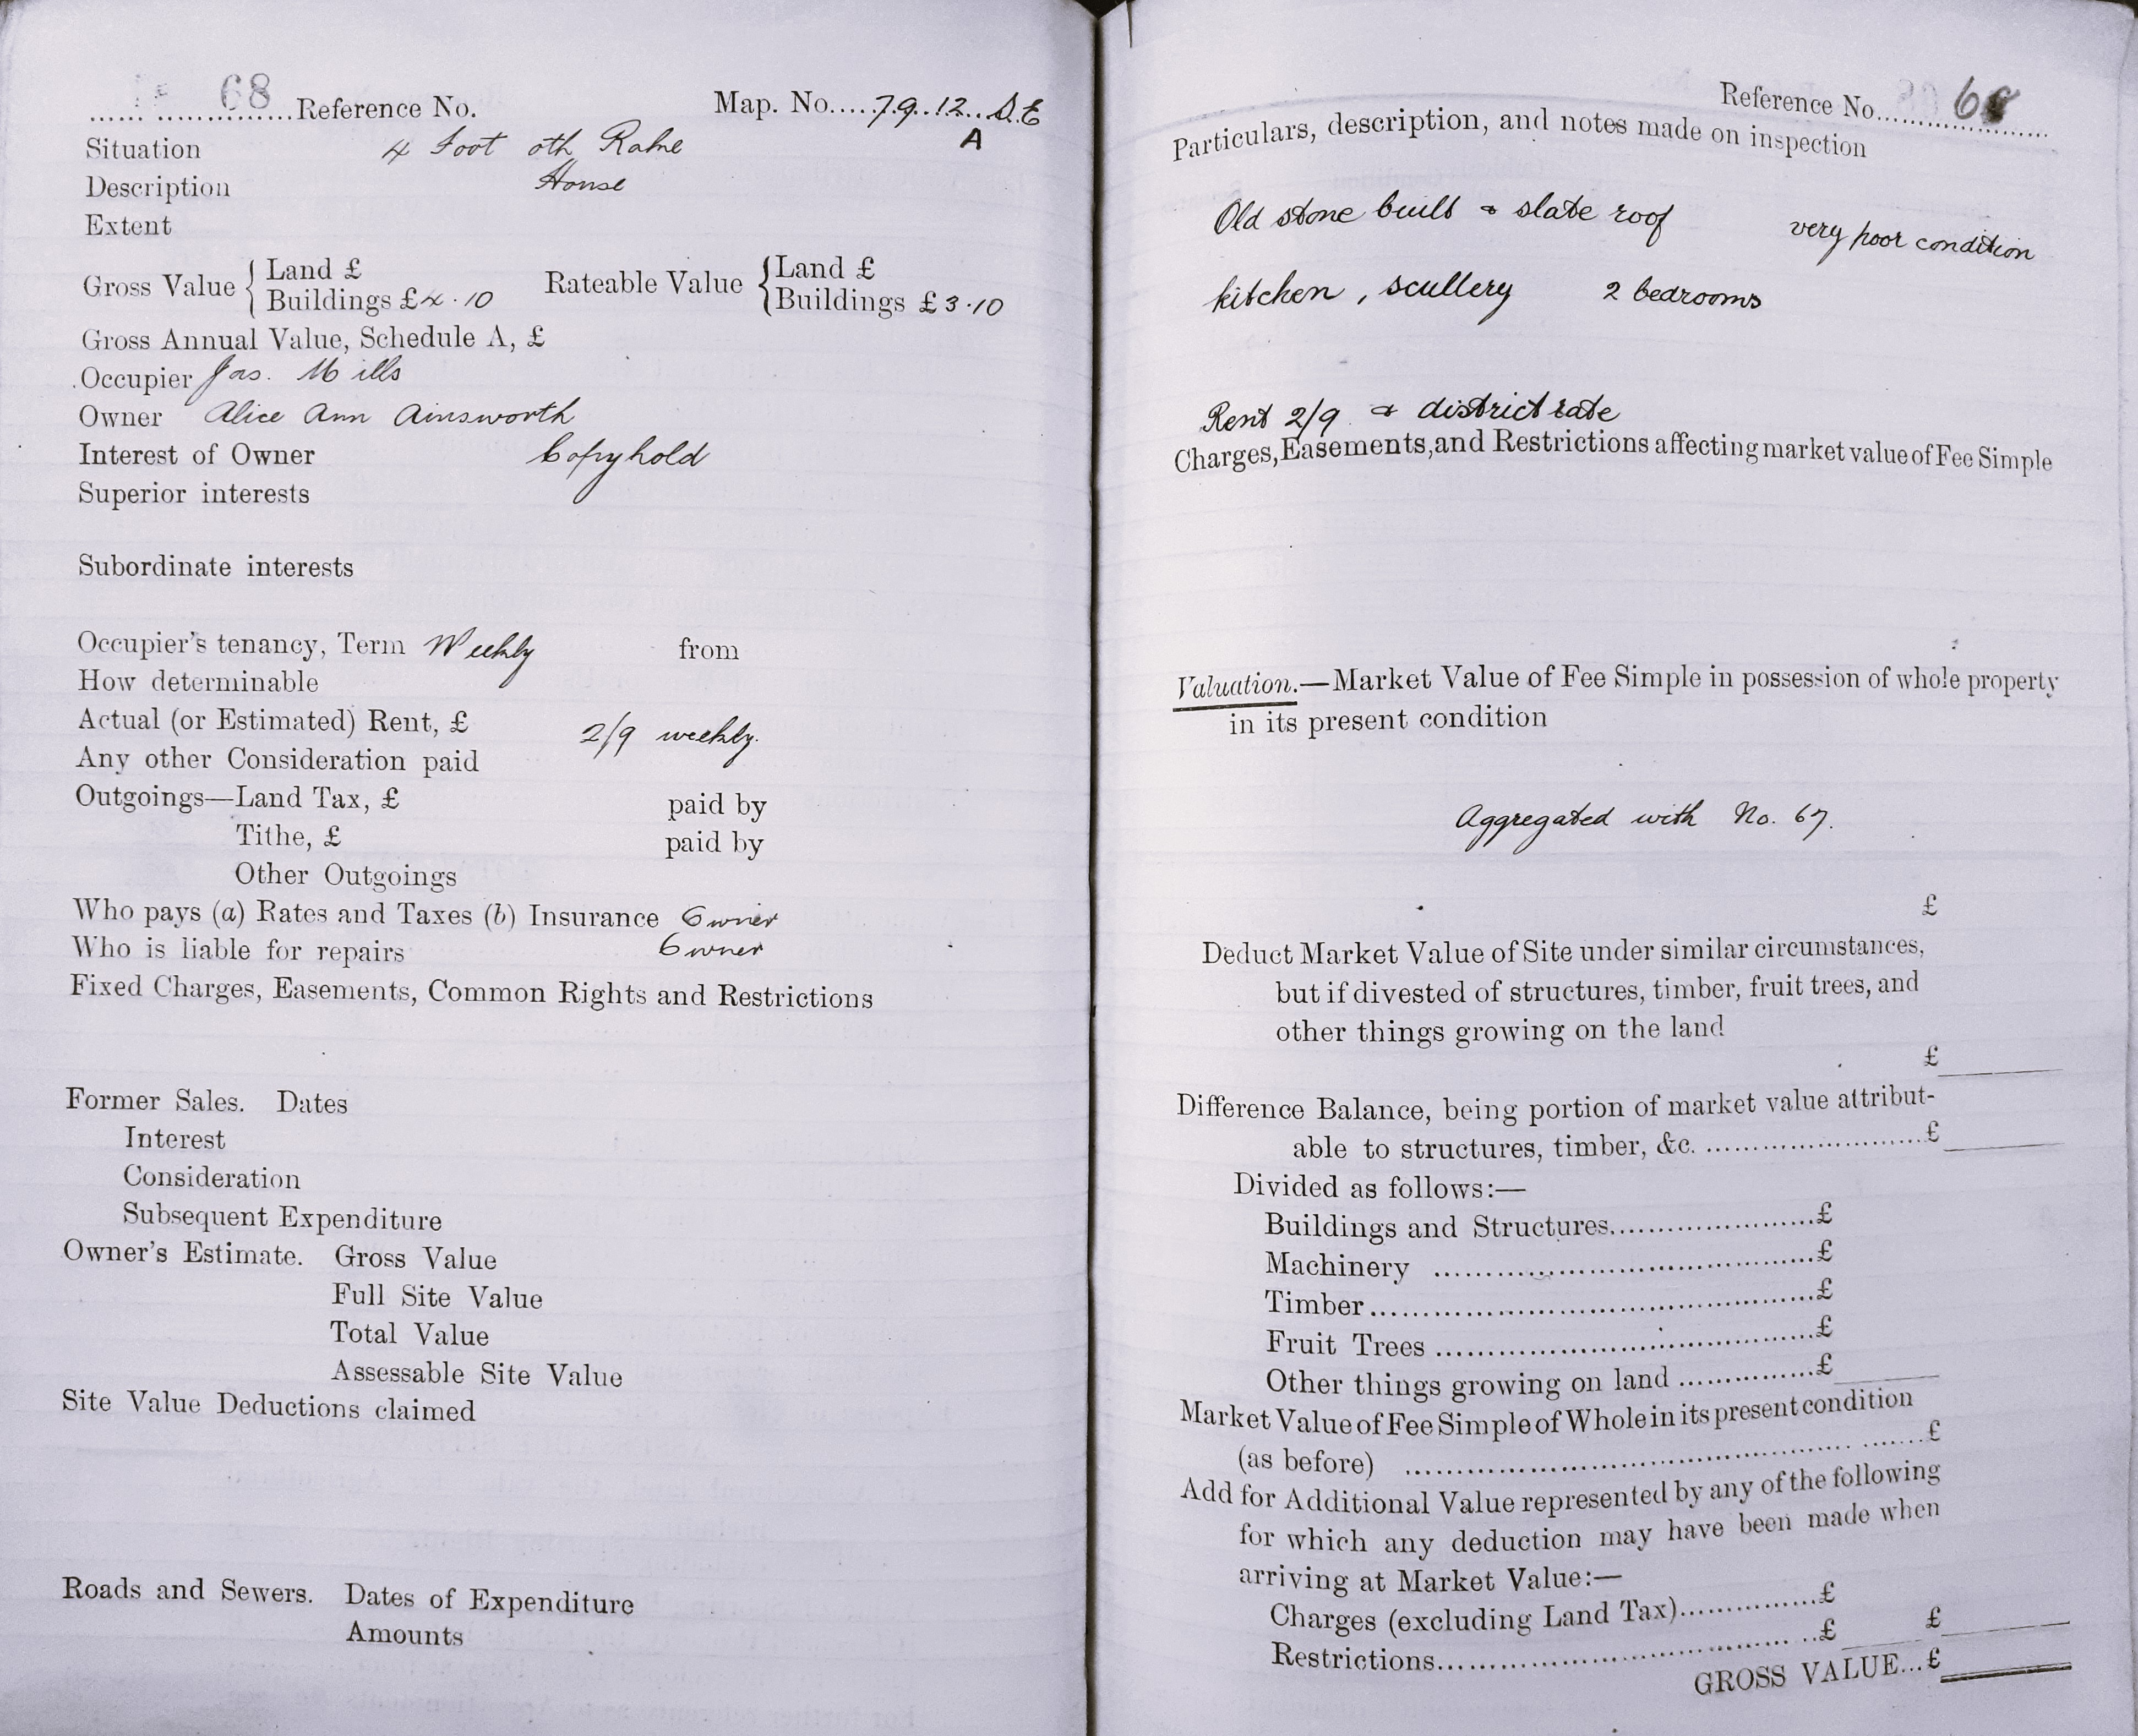 68 Reference No. Map. No. 79.12. S.E
A
Situation 4 Foot oth Rake
Description House
Extent
Gross Value { Land £ Rateable Value { Land £
Buildings £4.10 Buildings £3.10
Gross Annual Value, Schedule A, £
Occupier Jas. Mills
Owner Alice Ann Ainsworth
Interest of Owner Copyhold
Superior interests
Subordinate interests
Occupier's tenancy, Term Weekly from
How determinable
Actual (or Estimated) Rent, £ 2/9 weekly.
Any other Consideration paid
Outgoings—Land Tax, £ paid by
Tithe, £ paid by
Other Outgoings
Who pays (a) Rates and Taxes (b) Insurance Owner
Who is liable for repairs Owner
Fixed Charges, Easements, Common Rights and Restrictions
Former Sales. Dates
Interest
Consideration
Subsequent Expenditure
Owner's Estimate. Gross Value
Full Site Value
Total Value
Assessable Site Value
Site Value Deductions claimed
Roads and Sewers. Dates of Expenditure
Amounts
Reference No. 68
Particulars, description, and notes made on inspection
Old stone built & slate roof very poor condition
kitchen, scullery 2 bedrooms
Rent 2/9 & district rate
Charges, Easements, and Restrictions affecting market value of Fee Simple
Valuation.—Market Value of Fee Simple in possession of whole property
in its present condition
Aggregated with No. 67.
£
Deduct Market Value of Site under similar circumstances,
but if divested of structures, timber, fruit trees, and
other things growing on the land
£
Difference Balance, being portion of market value attribut-
able to structures, timber, &c. ........................£
Divided as follows:—
Buildings and Structures.......................£
Machinery .......................................£
Timber.............................................£
Fruit Trees .....................................£
Other things growing on land ...............£
Market Value of Fee Simple of Whole in its present condition
(as before) .....................................................£
Add for Additional Value represented by any of the following
for which any deduction may have been made when
arriving at Market Value:—
Charges (excluding Land Tax)...............£
Restrictions.......................................£ £
GROSS VALUE...£